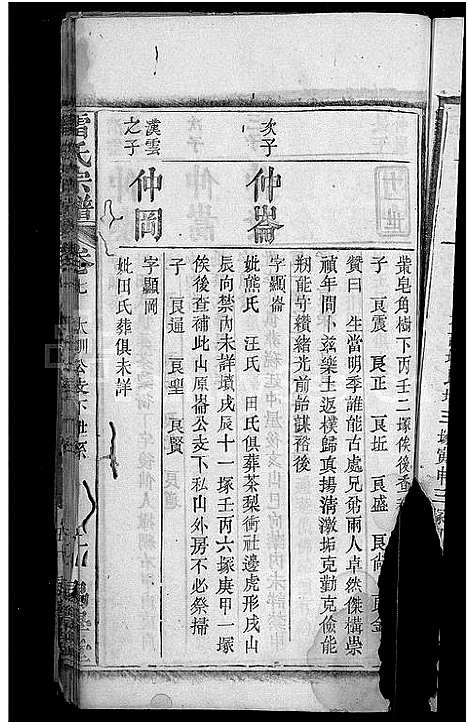 十一世
葉皂角樹下丙壬二塚俟後查
子 艮震 艮正 艮坵 艮盛 艮尚 艮金
贊曰 生當明季誰能古處兄弟兩人卓然傑構崇
禎年間卜茲樂土返樸歸真揚清激垢克勤克儉能
剏能守纘緒光前詒謀裕後
次子
仲崙
字顯崙
妣熊氏 汪氏 田氏俱葬茶梨衝社邊虎形戌山
辰向禁內未詳墳戌辰十一塚壬丙六塚庚甲一塚
俟後查補此山原崙公支下私山外房不必祭掃
子 艮通 艮聖 艮賢
漢雲
之子
仲岡
字顯岡
妣田氏葬俱未詳
雷氏宗譜
卷七
公支下世系